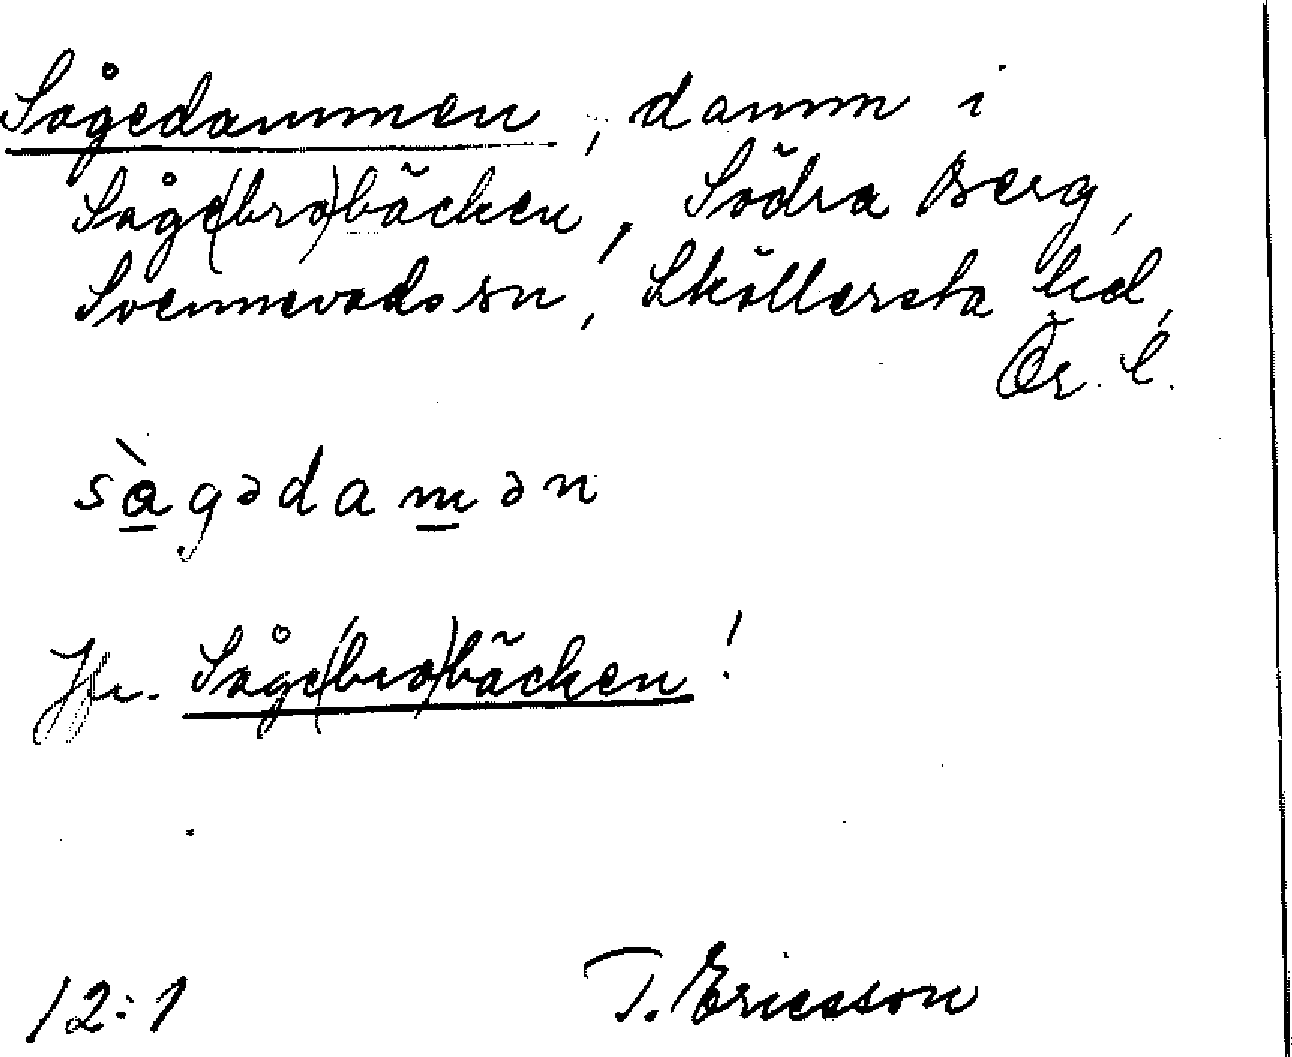 Sågedammen, damm i
Såge(bro)bäcken, Södra Berg,
Svennevads sn, Sköllersta hd,
Ör. l.
sàgədamən
Jfr. Såge(bro)bäcken!
12:1 T. Ericsson